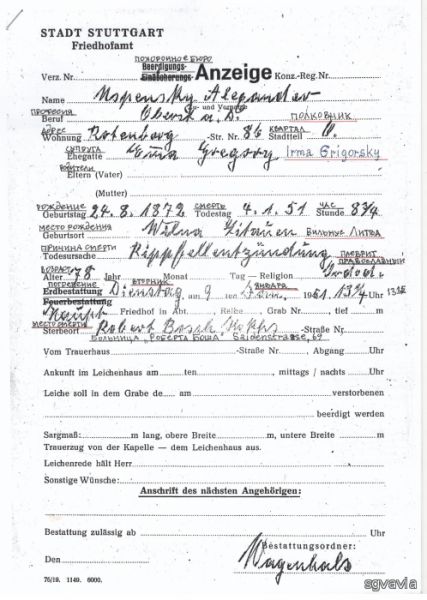 STADT STUTTGART
Friedhofamt
ПОХОРОННОЕ БЮРО
Beerdigungs-
Verz. Nr. Einäscherungs- Anzeige Konz.-Reg.Nr.
Name Uspensky Alexander
Zu- und Vorname
ПРОФЕССИЯ
Beruf Oberst a. D. ПОЛКОВНИК
АДРЕС КВАРТАЛ
Wohnung Rotenberg -Str. Nr. 86 Stadtteil O.
СУПРУГА
Ehegatte Gregory Irma Grigorsky
РОДИТЕЛИ
Eltern (Vater)
(Mutter)
РОЖДЕНИЕ СМЕРТЬ ЧАС
Geburtstag 24. 8. 1872 Todestag 4. 1. 51 Stunde 8 3/4
МЕСТО РОЖДЕНИЯ
Geburtsort Wilna Litauen ВИЛЬНЮС ЛИТВА
ПРИЧИНА СМЕРТИ ПЛЕВРИТ
Todesursache Rippfellentzündung ПРАВОСЛАВНЫЙ
ВОЗРАСТ
Alter 78 Jahr Monat Tag – Religion
ПОГРЕБЕНИЕ ВТОРНИК ЯНВАРЯ
Erdbestattung Dienstag am 9 ten Jan. 1951 13 1/4 Uhr
Feuerbestattung
Haupt Friedhof in Abt. Reihe Grab Nr. tief m
МЕСТО СМЕРТИ
Sterbeort Robert Bosch -Straße Nr.
БОЛЬНИЦА "РОБЕРТА БОША" Seidenstrasse, 69
Vom Trauerhaus -Straße Nr. Abgang Uhr
Ankunft im Leichenhaus am ten, mittags / nachts Uhr
Leiche soll in dem Grabe de am verstorbenen
beerdigt werden
Sargmaß: m lang, obere Breite m, untere Breite m
Trauerzug von der Kapelle — dem Leichenhaus aus.
Leichenrede hält Herr
Sonstige Wünsche:
Anschrift des nächsten Angehörigen:
Bestattung zulässig ab Uhr
Bestattungsordner:
Den Wagenhals
76/19. 1149. 6000.
sgvavia